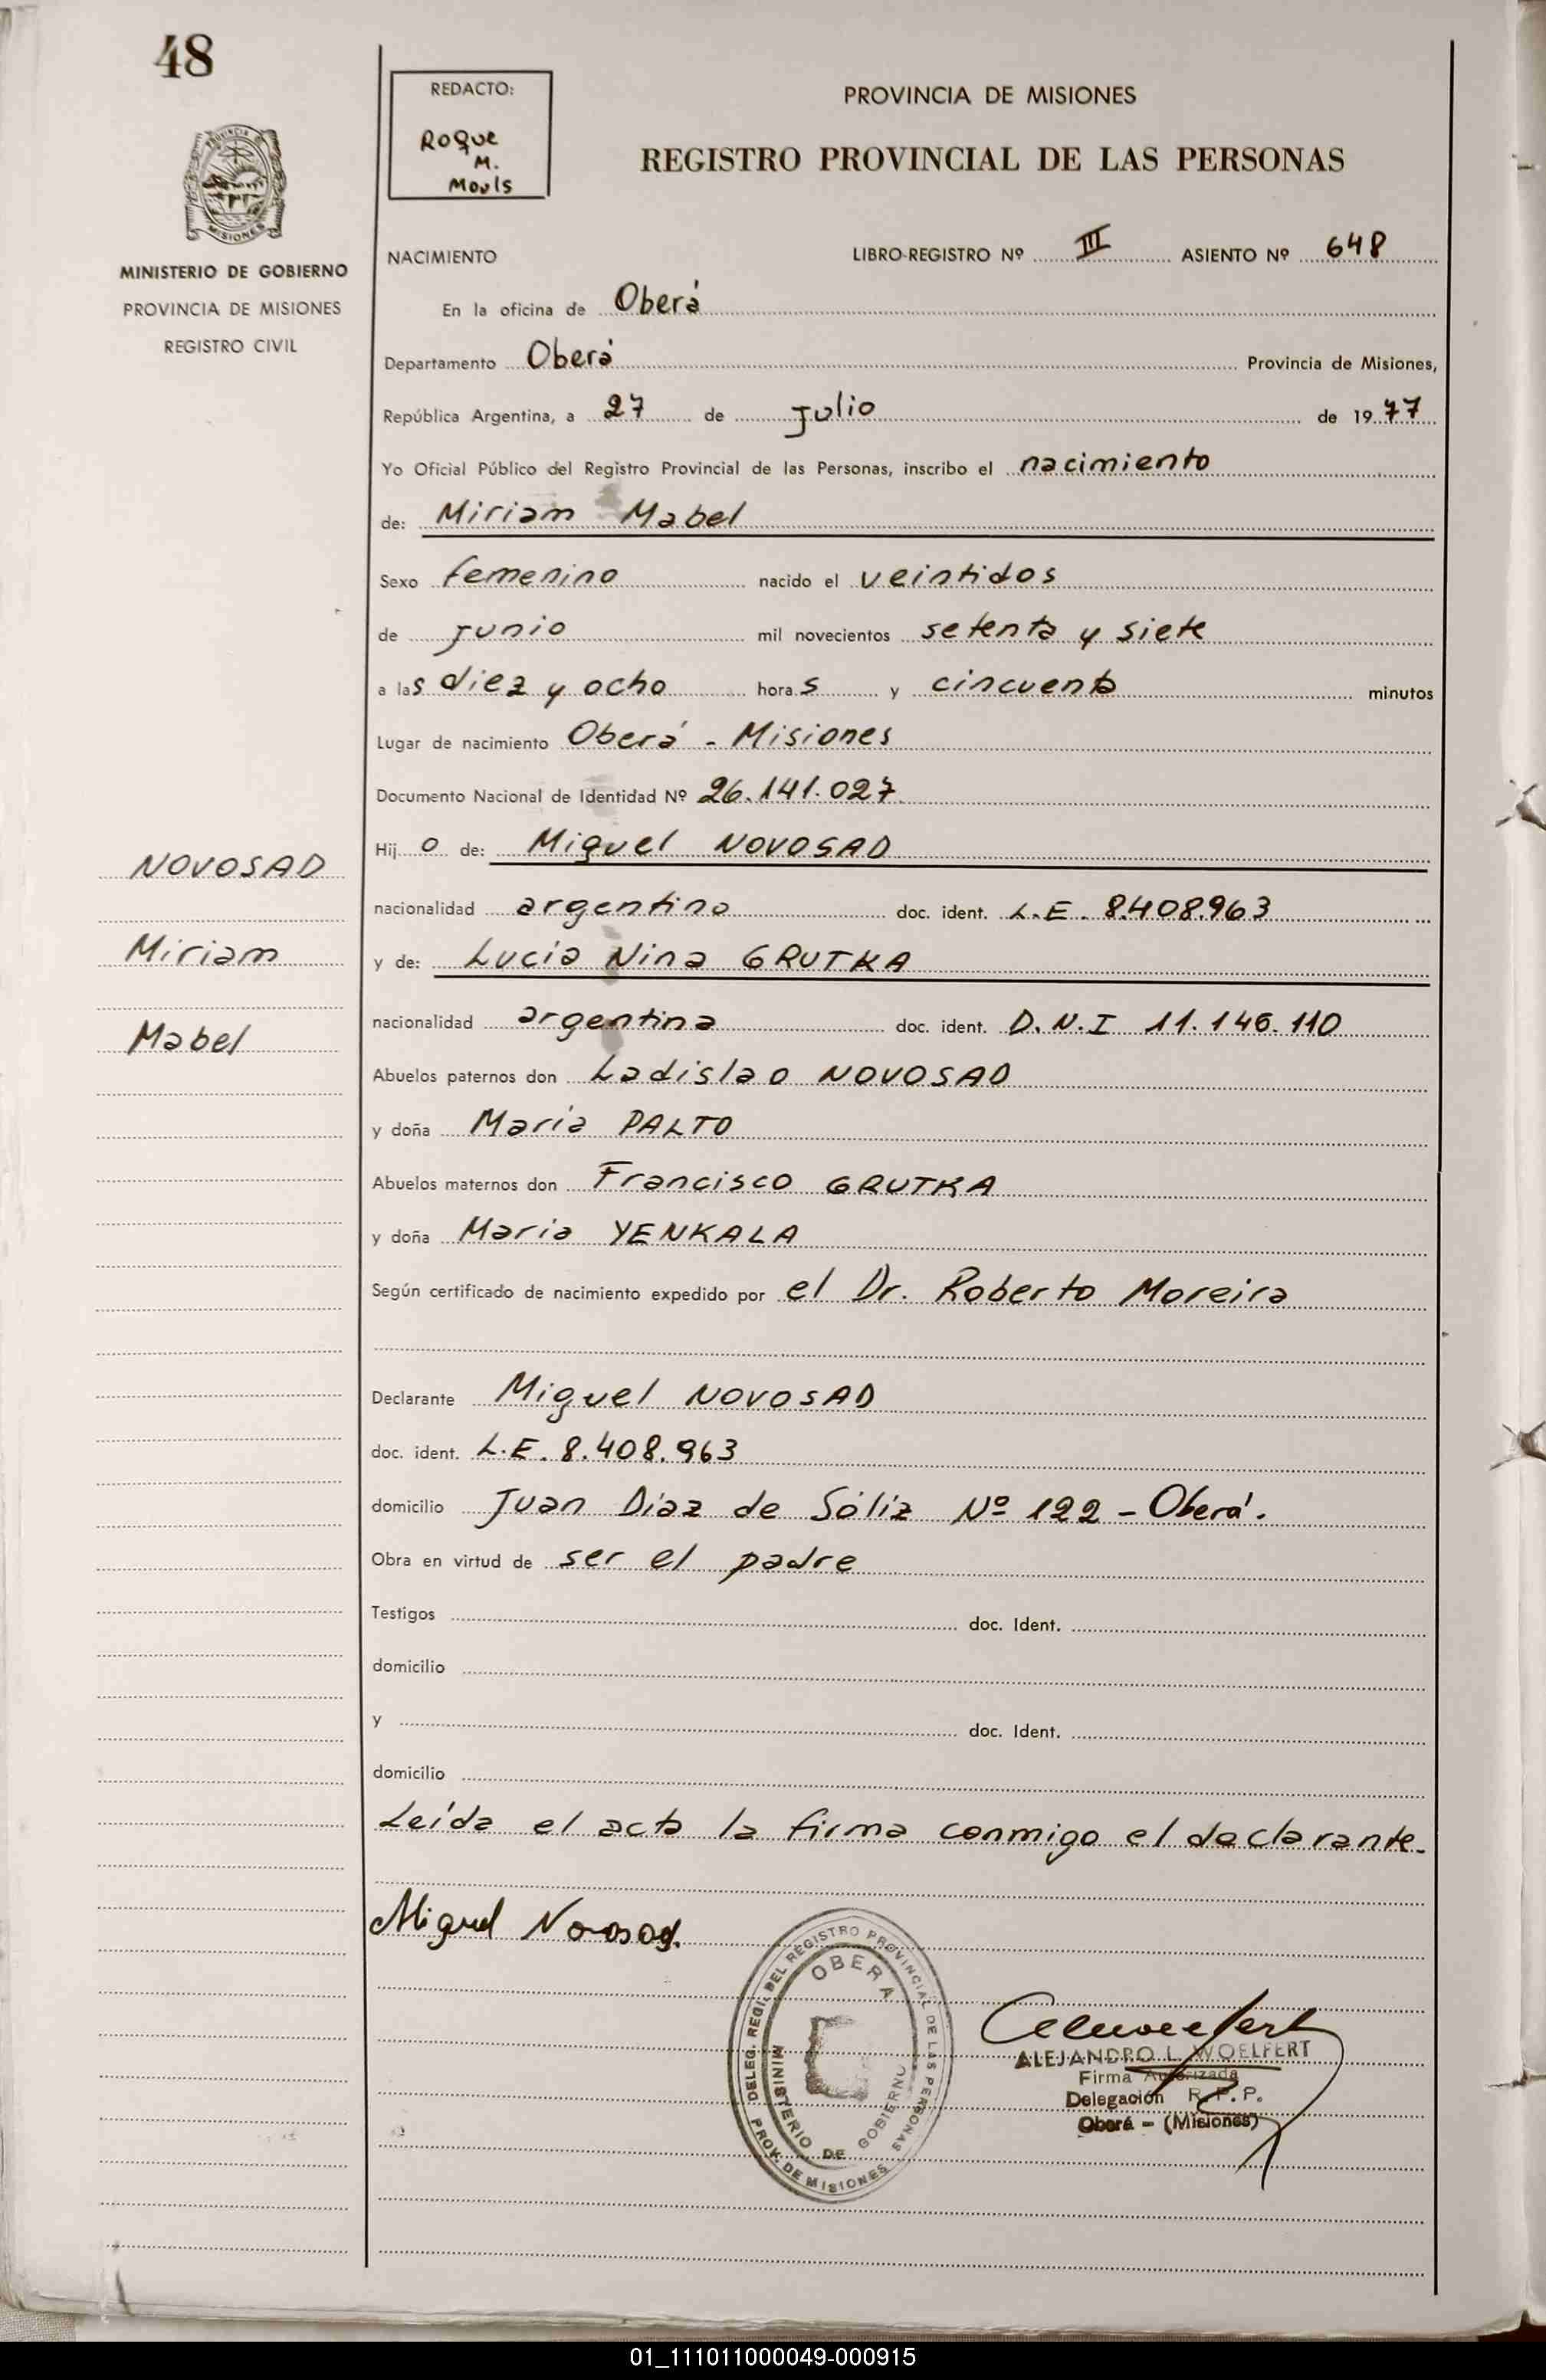 48
PROVINCIA DE
MISIONES
MINISTERIO DE GOBIERNO
PROVINCIA DE MISIONES
REGISTRO CIVIL
REDACTO:
Roque
M.
Mouls
PROVINCIA DE MISIONES
REGISTRO PROVINCIAL DE LAS PERSONAS
NACIMIENTO LIBRO-REGISTRO Nº III ASIENTO Nº 648
En la oficina de Oberá
Departamento Oberá Provincia de Misiones,
República Argentina, a 27 de Julio de 1977
Yo Oficial Público del Registro Provincial de las Personas, inscribo el nacimiento
de: Miriam Mabel
Sexo femenino nacido el veintidos
de junio mil novecientos setenta y siete
a las diez y ocho horas y cincuenta minutos
Lugar de nacimiento Oberá - Misiones
Documento Nacional de Identidad Nº 26.141.027
Hijo de: Miguel NOVOSAD
NOVOSAD
nacionalidad argentino doc. ident. L.E. 8.408.963
Miriam
y de: Lucía Nina GRUTKA
Mabel
nacionalidad argentina doc. ident. D.N.I 11.146.110
Abuelos paternos don Ladislao NOVOSAD
y doña María PALTO
Abuelos maternos don Francisco GRUTKA
y doña María YENKALA
Según certificado de nacimiento expedido por el Dr. Roberto Moreira
Declarante Miguel NOVOSAD
doc. ident. L.E. 8.408.963
domicilio Juan Díaz de Sóliz Nº 122 - Oberá.
Obra en virtud de ser el padre
Testigos doc. Ident.
domicilio
y doc. Ident.
domicilio
Leída el acta la firma conmigo el declarante.
Miguel Novosad.
DELEG. REGI. DEL REGISTRO PROVINCIAL DE LAS PERSONAS
PROV. DE MISIONES
OBERA
MINISTERIO DE GOBIERNO
ALEJANDRO L. WOELFERT
Firma Autorizada
Delegación R. P. P.
Oberá - (Misiones)
01_111011000049-000915